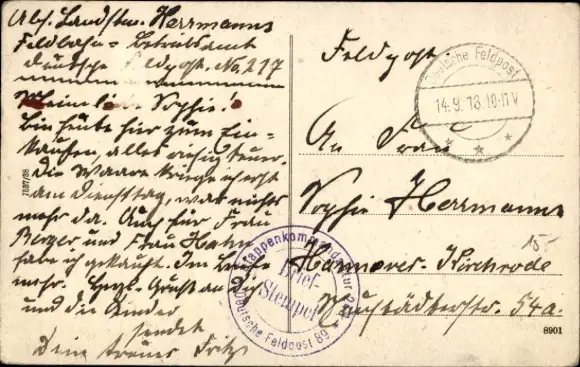 Abs. Landstm. Herrmanns
Feldbahn-Betriebsamt
Deutsche Feldpost. No. 217
Meine liebe Sophie!
Bin heute hier zum Ein-
kaufen, alles riesig teuer.
Die Waare kriege ich erst
am Dienstag, war nichts
mehr da. Auch für Frau
Berger und Frau Hahn
habe ich gekauft. Im Briefe
mehr. Herzl. Gruß an Dich
und die Kinder
sendet
Dein treuer Fritz
Feldpost.
Deutsche Feldpost
14.9.18.10-11V
* * *
An Frau
Sophie Herrmanns
Hannover-Kirchrode
54a.
15.-
Etappenkommandantur
Brief-
Stempel
Deutsche Feldpost 89
7887/08
8901